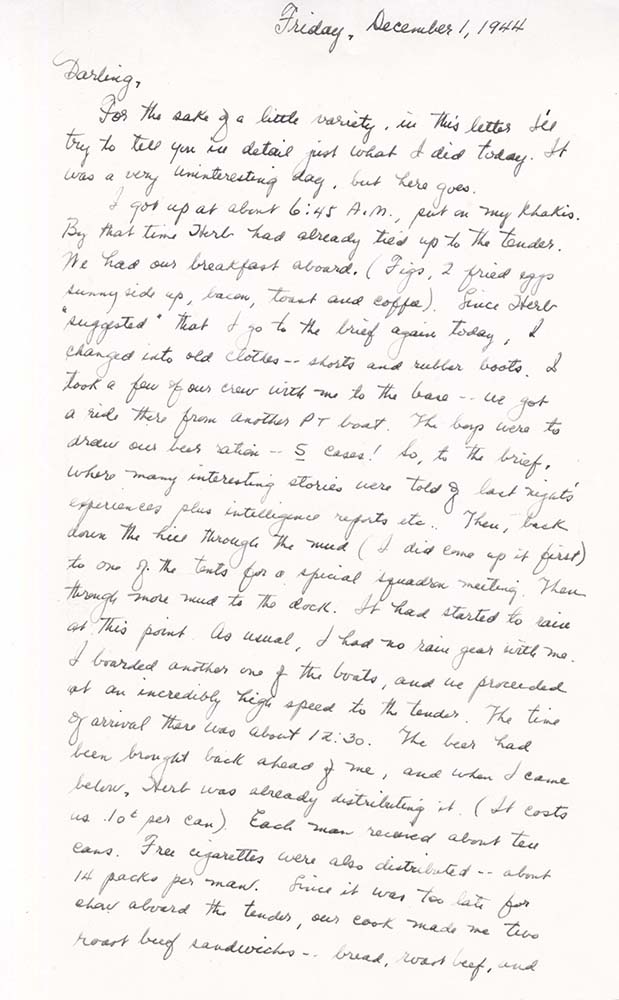 Friday, December 1, 1944
Darling,
For the sake of a little variety, in this letter I'll
try to tell you in detail just what I did today. It
was a very uninteresting day, but here goes.
I got up at about 6:45 A.M., put on my khakis.
By that time Herb had already tied up to the tender.
We had our breakfast aboard. (Figs, 2 fried eggs
sunny side up, bacon, toast and coffee). Since Herb
"suggested" that I go to the brief again today, I
changed into old clothes -- shorts and rubber boots. I
took a few of our crew with me to the base -- we got
a ride there from another PT boat. The boys were to
draw our beer ration -- 5 cases! So, to the brief,
where many interesting stories were told of last night's
experiences plus intelligence reports etc.. Then, back
down the hill through the mud (I did come up it first)
to one of the tents for a special squadron meeting. Then
through more mud to the dock. It had started to rain
at this point. As usual, I had no rain gear with me.
I boarded another one of the boats, and we proceeded
at an incredibly high speed to the tender. The time
of arrival there was about 12:30. The beer had
been brought back ahead of me, and when I came
below, Herb was already distributing it. (It costs
us .10¢ per can). Each man received about ten
cans. Free cigarettes were also distributed -- about
14 packs per man. Since it was too late for
chow aboard the tender, our cook made me two
roast beef sandwiches -- bread, roast beef, and